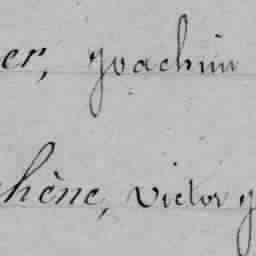 er, Joachim
hêne, Victor